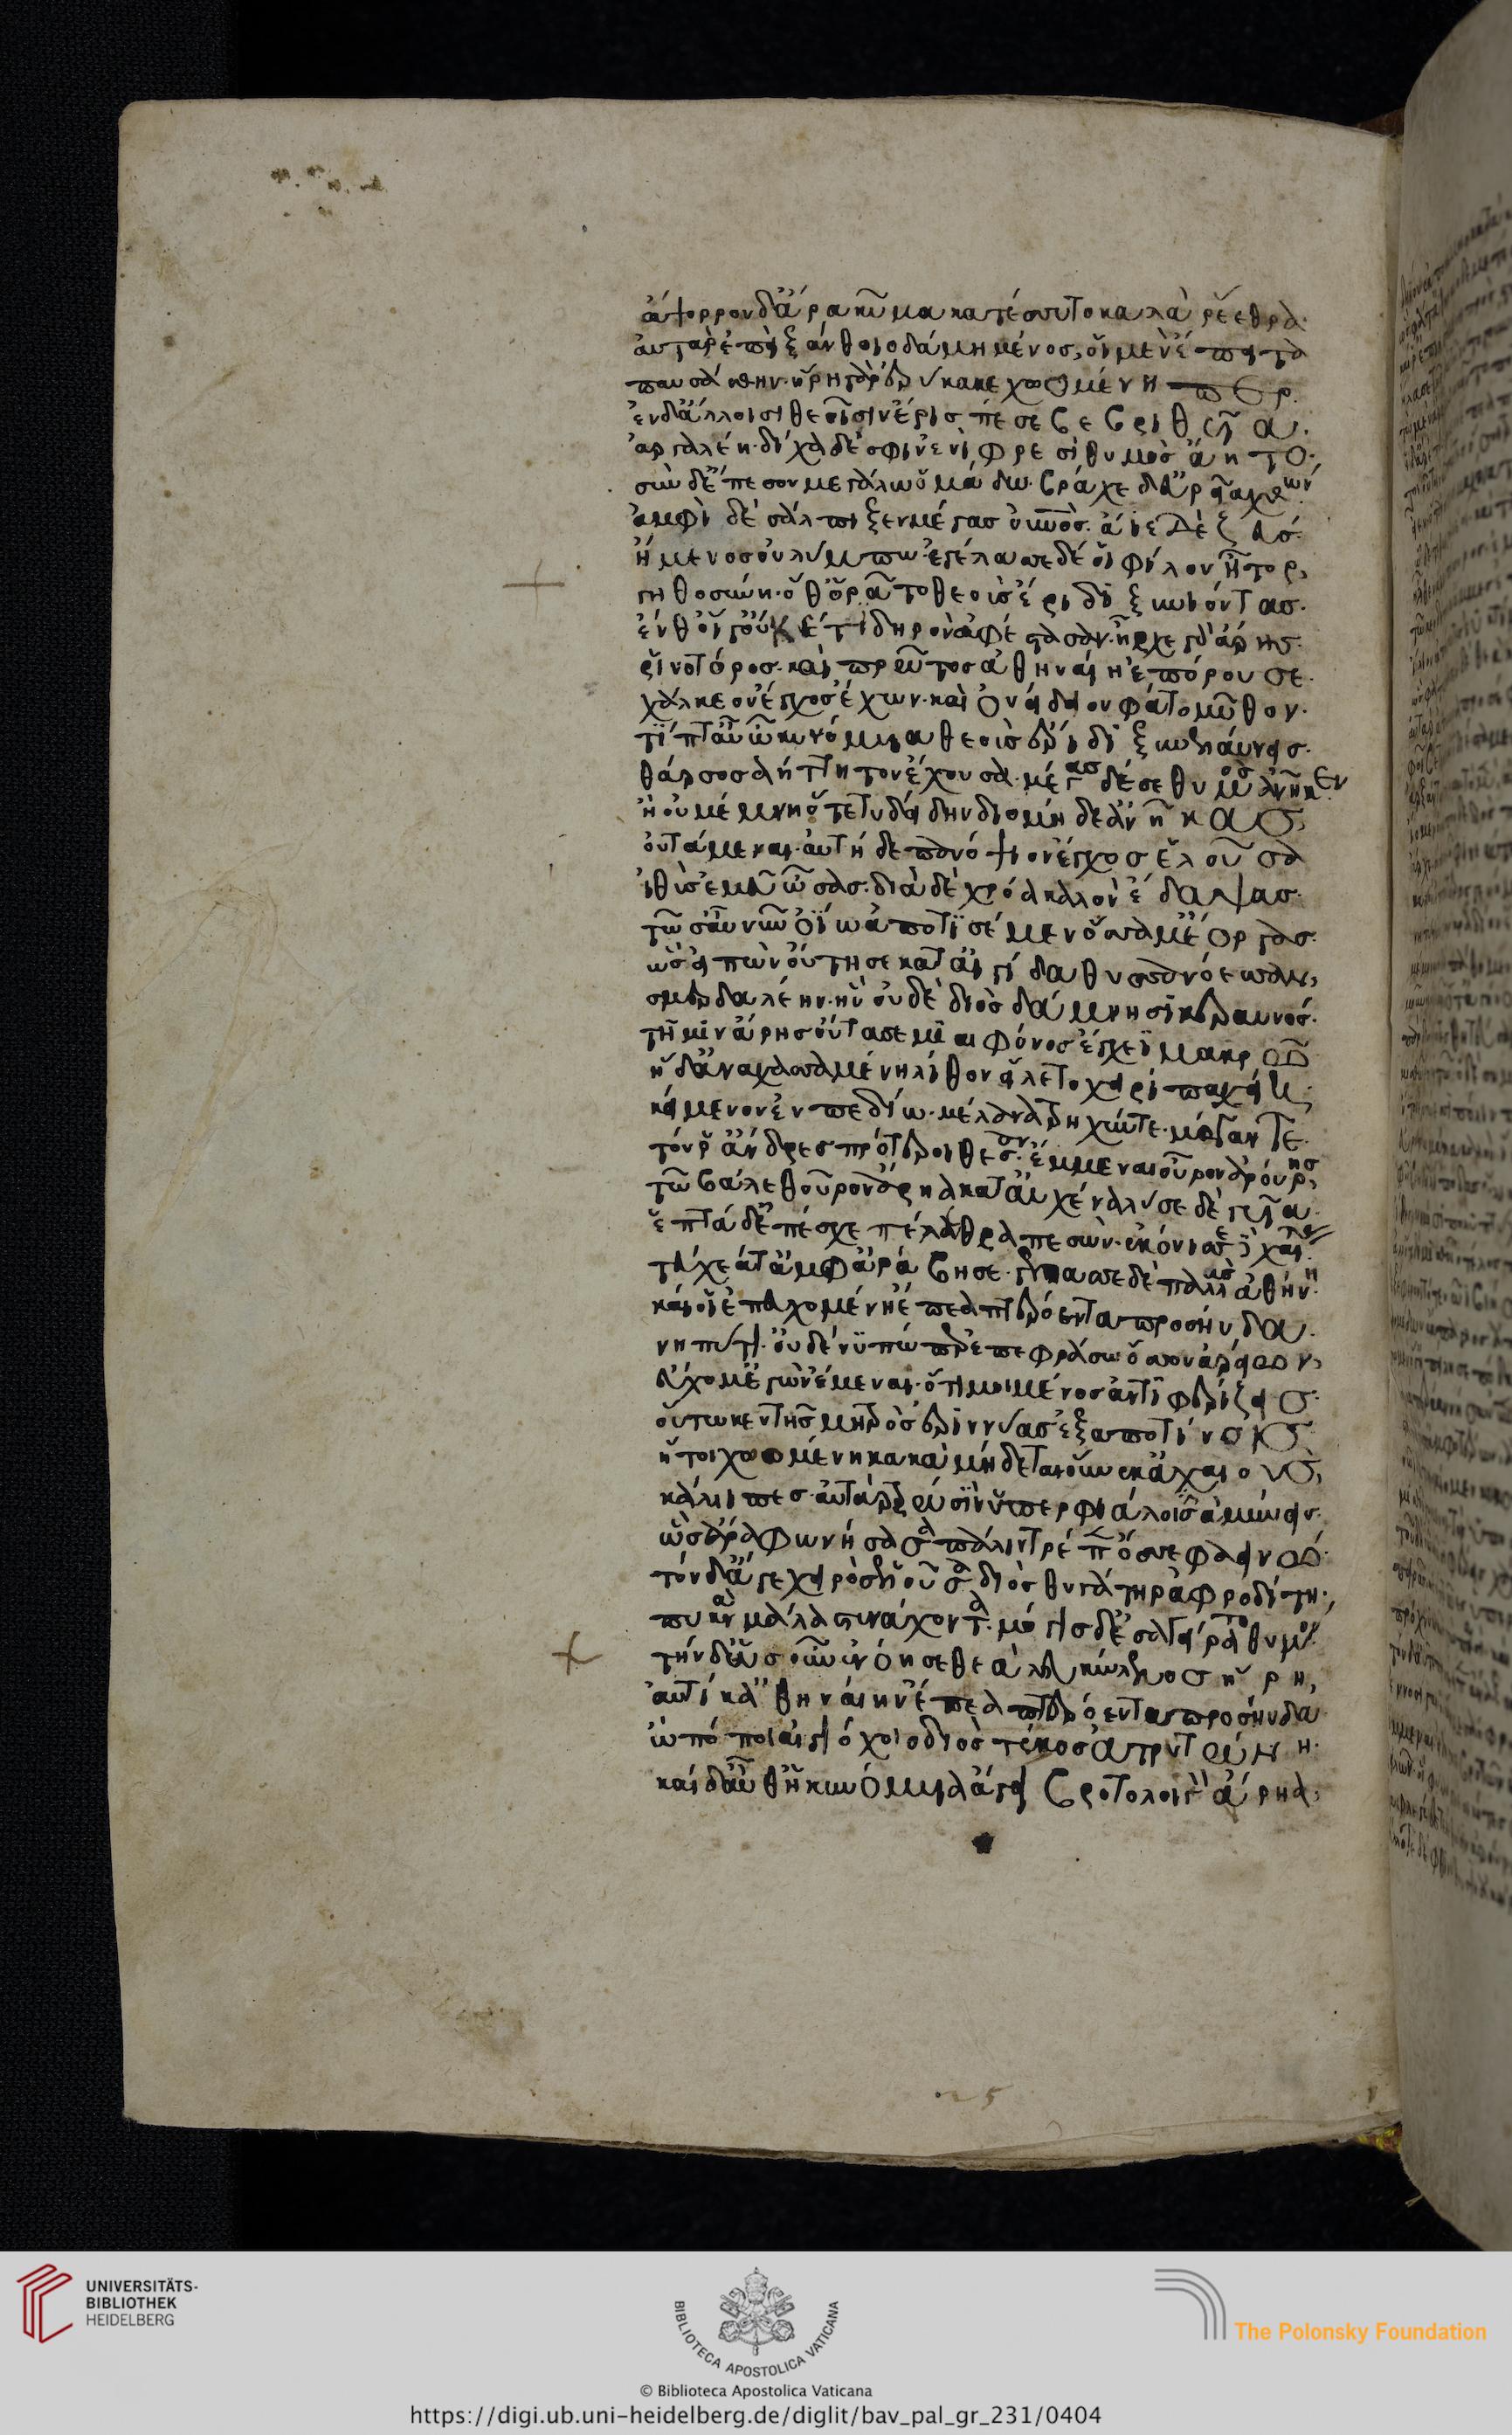 ἄψορρον δ' ἄρα κῦμα κατέσσυτο καλὰ ῥέεθρα.
αὐτὰρ ἐπεὶ ξάνθοιο δάμη μένος, οἱ μὲν ἔπειτα
παυσάσθην. ἥρη γὰρ ἐρύκακε χωομένη περ.
ἐν δ' ἄλλοισι θεοῖσιν ἔρις πέσε βεβριθεῖα.
ἀργαλέη. δίχα δέ σφιν ἐνὶ φρεσὶ θυμὸς ἄητο.
σὺν δ' ἔπεσον μεγάλω ὁμάδω. βράχε δ' εὐρεῖα χθών.
ἀμφὶ δὲ σάλπιξεν μέγας οὐρανός. ἄϊε δὲ ζεύς.
ἥμενος οὐλύμπω. ἐγέλασσε δέ οἱ φίλον ἦτορ,
γηθοσύνη. ὅθ' ὁρᾶτο θεοὺς ἔριδι ξυνιόντας.
ἔνθ' οἵ γ' οὐκέτι δηρὸν ἀφέστασαν. ἦρχε γὰρ ἄρης
ῥινοτόρος. καὶ πρῶτος ἀθηναίη ἐπόρουσε.
χάλκεον ἔγχος ἔχων. καὶ ὀνείδειον φάτο μῦθον.
τί πτ' αὖτ' ὦ κυνόμυια θεοὺς ἔριδι ξυνελαύνεις.
θάρσος ἄητον ἔχουσα. μέγας δέ σε θυμὸς ἀνῆκεν.
ἢ οὐ μέμνη ὅτε τυδείδην διομήδε' ἀνῆκας,
οὐτάμεναι. αὐτὴ δὲ πανόψιον ἔγχος ἑλοῦσα
ἰθὺς ἐμεῦ ὦσας. διὰ δὲ χρόα καλὸν ἔδαψας.
τῶ σ' αὖ νῦν ὀΐω ἀποτισέμεν ὅσσα μ' ἔοργας.
ὣς εἰπὼν οὔτησε κατ' αἰγίδα θυσσανόεσσαν,
σμερδαλέην. ἣν οὐδὲ διὸς δάμνησι κεραυνός.
τῇ μιν ἄρης οὔτησε μιαιφόνος ἔγχεϊ μακρῶ
ἣ δ' ἀναχασσαμένη λίθον εἵλετο χειρὶ παχείη
κείμενον ἐν πεδίω. μέλανα τρηχύν τε. μέγαν τε.
τόν ῥ' ἄνδρες πρότεροι θέσαν ἔμμεναι οὖρον ἀρούρης,
τῶ βάλε θοῦρον ἄρηα κατ' αὐχένα λῦσε δὲ γυῖα.
ἑπτὰ δ' ἐπέσχε πέλεθρα πεσών. ἐκόνισσε δὲ χαίτας.
τεύχεά τ' ἀμφαράβησε. γέλασσε δὲ παλλὰς ἀθήνη.
καί οἱ ἐπευχομένη ἔπεα πτερόεντα προσηύδα.
νηπύτι' οὐδέ νύ πώ περ ἐπεφράσω ὅσσον ἀρείων,
εὔχομ' ἐγὼν ἔμεναι. ὅτι μοι μένος ἀντιφερίζεις.
οὕτω κεν τῆς μητρὸς ἐριννύας ἐξαποτίνοις
ἥ τοι χωομένη κακὰ μήδεται οὕνεκ' ἀχαιούς,
κάλλιπες. αὐτὰρ τρωσὶν ὑπερφιάλοισ ἀμύνεις.
ὣς ἄρα φωνήσασα πάλιν τρέπεν ὄσσε φαεινώ.
τὸν δ' ἄγε χειρὸς ἑλοῦσα διὸς θυγάτηρ ἀφροδίτη,
πυκνὰ μάλα στενάχοντα. μόγις δ' ἐσαγείρατο θυμόν.
τὴν δ' ὡς οὖν ἐνόησε θεὰ λευκώλενος ἥρη,
αὐτίκ' ἀθηναίην ἔπεα πτερόεντα προσηύδα
ὢ πόποι αἰγιόχοιο διὸς τέκος ἀτρυτώνη.
καὶ δ' αὖθ' ἡ κυνόμυια ἄγει βροτολοιγὸν ἄρηα,
25
UNIVERSITÄTS-
BIBLIOTHEK
HEIDELBERG
BIBLIOTECA APOSTOLICA VATICANA
The Polonsky Foundation
© Biblioteca Apostolica Vaticana
https://digi.ub.uni-heidelberg.de/diglit/bav_pal_gr_231/0404